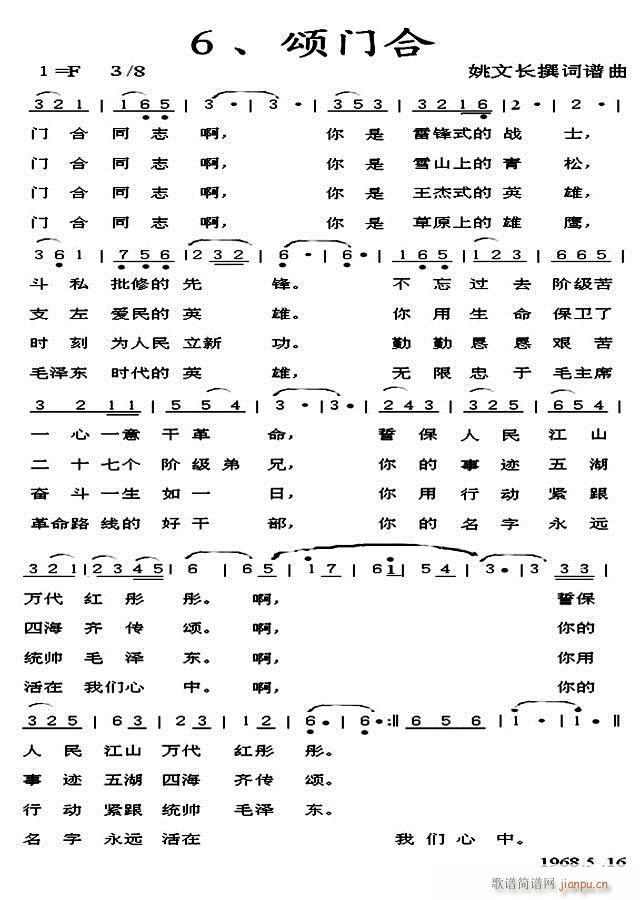 6、颂门合
1=F 3/8 姚文长撰词谱曲
3 2 1 | 1 6 5 | 3 · | 3 · | 3 5 3 | 3 2 1 6 | 2 · | 2 · |
门 合 同 志 啊, 你 是 雷锋式的 战 士,
门 合 同 志 啊, 你 是 雪山上的 青 松,
门 合 同 志 啊, 你 是 王杰式的 英 雄,
门 合 同 志 啊, 你 是 草原上的 雄 鹰,
3 6 1 | 7 5 6 | 2 3 2 | 6 · | 6 · | 1 6 5 | 1 2 3 | 6 6 5 |
斗 私 批修的 先 锋。 不 忘 过 去 阶级苦
支 左 爱民的 英 雄。 你 用 生 命 保卫了
时 刻 为人民 立新 功。 勤勤 恳恳 艰 苦
毛泽东 时代的 英 雄。 无 限 忠 于 毛主席
3 2 1 1 | 5 5 4 | 3 · | 3 · | 2 4 3 | 2 2 1 | 6 5 4 |
一 心 一意 干 革 命, 誓 保 人 民 江 山
二 十 七个 阶 级 弟 兄, 你 的 事 迹 五 湖
奋 斗 一生 如 一 日, 你 用 行 动 紧 跟
革命 路 线的 好 干 部, 你 的 名 字 永 远
3 2 1 | 2 3 4 5 | 6 · | 6 5 | 1 7 | 6 i | 5 4 | 3 · | 3 3 3 |
万代 红 彤 彤。 啊, 誓保
四海 齐 传 颂。 啊, 你的
统帅 毛 泽 东。 啊, 你用
活在 我们 心 中。 啊, 你的
3 2 5 | 6 3 | 2 3 | 1 2 | 6 · | 6 · :‖ 6 5 6 | 1 · | 1 · ‖
人 民 江山 万代 红彤 彤。
事 迹 五湖 四海 齐传 颂。
行 动 紧跟 统帅 毛泽 东。
名 字 永远 活在 我 们 心 中。
1968.5 .16
歌谱简谱网
jianpu.cn